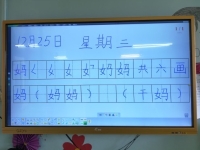 12月25日 星期三
妈 ( 女 女 妇 妈 妈 共 六 画
妈 ( 妈 妈 ) ( 干 妈 )